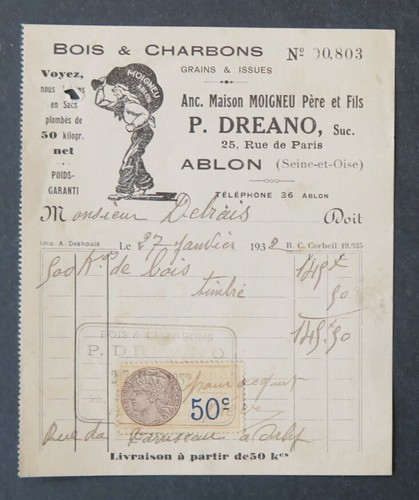 BOIS & CHARBONS
Nº 00.803
GRAINS & ISSUES
Voyez,
nous
en Sacs
plombés de
50 kilogr.
net
POIDS-
GARANTI
MOIGNEU
ABLON
Anc. Maison MOIGNEU Père et Fils
P. DREANO, Suc.
25, Rue de Paris
ABLON (Seine-et-Oise)
TÉLÉPHONE 36 ABLON
Monsieur Debrais Doit
Imp. A. Desbouis Le 27 Janvier 1932 R. C. Corbeil 19.935
500 Kos de bois 149
timbré 50
149.50
BOIS & CHARBONS
P. DREANO
pour acquit
50c
Rue du à Orly
Livraison à partir de 50 kos